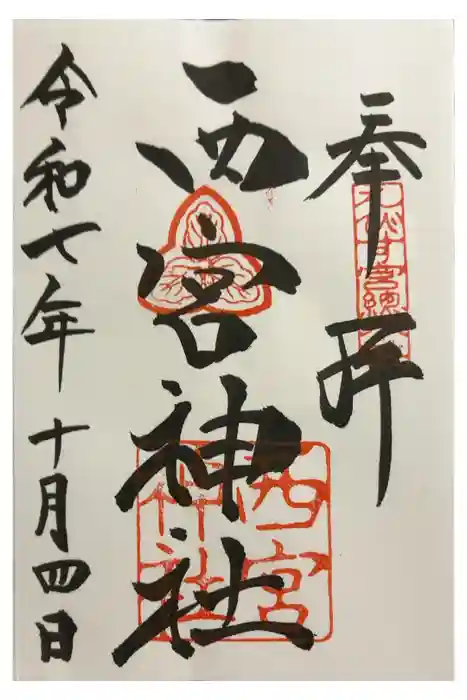 奉拝
西宮神社
西宮
神社
令和七年十月四日